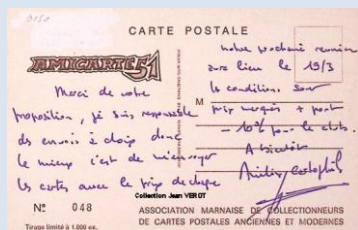 CARTE POSTALE
AMICARTE 51
Merci de votre
proposition, je suis responsable
des envois à choix donc
le mieux c'est de m'envoyer
les cartes avec le prix de chaque
notre prochaine reunion
aura lieu le 19/3
les conditions sont
M
prix marqués + port
- 10% pour le club.
A bientôt
Collection Jean VEROT
N° 048
Tirage limité à 1.000 ex.
ASSOCIATION MARNAISE DE COLLECTIONNEURS
DE CARTES POSTALES ANCIENNES ET MODERNES